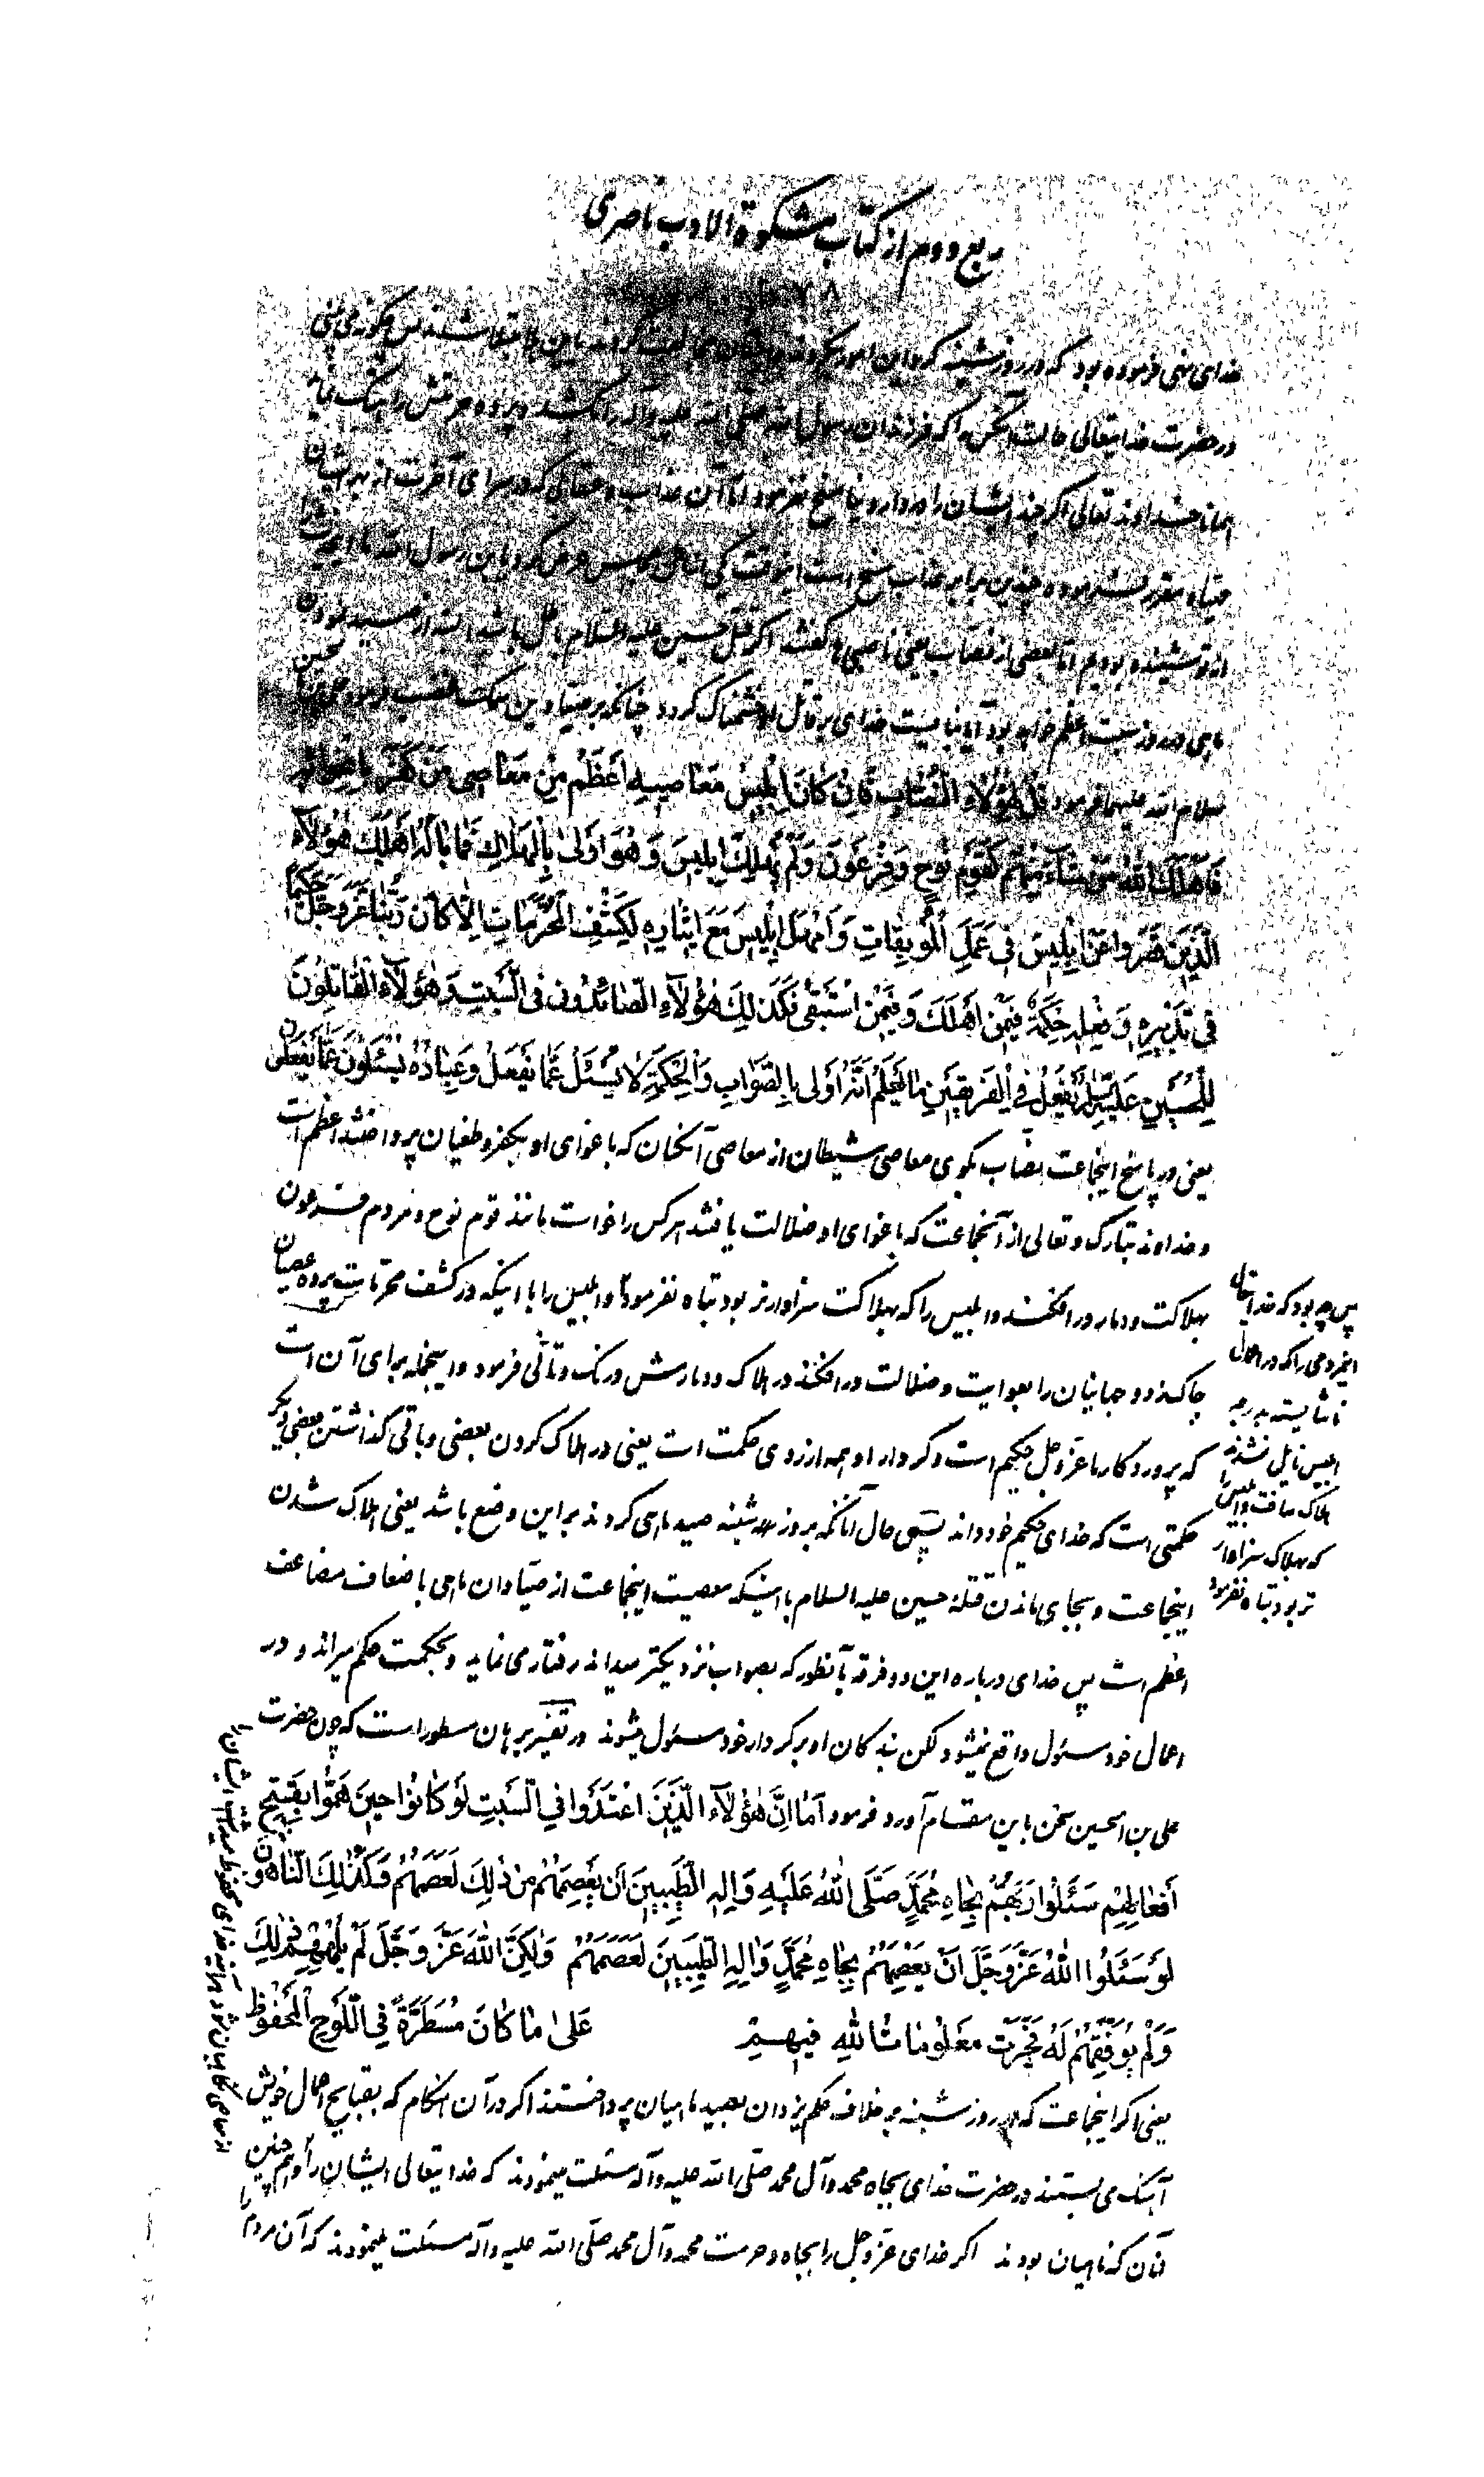 ربع دوم از کتاب مشکوة الادب ناصری
۷۸
خدای نهی فرموده بود که در روز شنبه گرد این امور
در حضرت خدایتعالی حالت آنکس را که فرزندان رسول خدا صلی الله علیه وآله را بکشد و پرده حرمتش را
همانا خداوند تعالی اگر چند ایشان را در دار دنیا مسخ نفرمود اما آن عذاب و عقابی که در سرای آخرت از بهر ایشان
مقرر فرموده چندین برابر عذاب مسخ است اینوقت یکی از اهل مجلس عرض کرد یا بن رسول الله ما این حدیث را
از تو شنیده بودیم اما بعضی از نصاب یعنی ناصبی ها گفتند اگر قتل حسین علیه السلام باطل باشد البته از صید نمودن
ماهی در روز سبت اعظم خواهد بود آیا نبایست خدای بر قاتل او خشمناک گردد چنانکه بر صیادین سمک غضب فرمود علی بن الحسین
سلام الله علیهما فرمود قُلْ لِهٰؤُلاءِ النُّصّابِ فَاِنْ كانَ اِبْلیسُ مَعاصیهِ اَعْظَمُ مِنْ مَعاصی مَنْ كَفَرَ بِاِغْوائِهِ
فَاَهْلَكَ اللهُ مَنْ شاءَ مِنْهُمْ كَقَوْمِ نُوحٍ وَفِرْعَوْنَ وَلَمْ یُهْلِكْ اِبْلیسَ وَهُوَ اَوْلىٰ بِالْهَلاكِ فَما بالُهُ اَهْلَكَ هٰؤُلاءِ
الَّذینَ قَصَرُوا عَنْ اِبْلیسَ فی عَمَلِ الْمُوبِقاتِ وَاَمْهَلَ اِبْلیسَ مَعَ ایثارِهِ لِكَشْفِ الْمُحَرَّماتِ اَلا كانَ رَبُّنا عَزَّ وَجَلَّ حَكیماً
فی تَدْبیرِهِ وَفِعْلِهِ حِكْمَةٌ فیمَنْ اَهْلَكَ وَفیمَنْ اسْتَبْقىٰ فَكَذٰلِكَ هٰؤُلاءِ الصّائِدُونَ فِی السَّبْتِ وَهٰؤُلاءِ الْقاتِلُونَ
لِلْحُسَیْنِ عَلَیْهِ السَّلامُ یَفْعَلُ فِی الْفَریقَیْنِ ما یَعْلَمُ اَنَّهُ اَوْلىٰ بِالصَّوابِ وَالْحِكْمَةِ لا یُسْئَلُ عَمّا یَفْعَلُ وَعِبادُهُ یُسْئَلُونَ عَمّا یَفْعَلُونَ
یعنی در پاسخ اینجماعت نصاب بگوی معاصی شیطان از معاصی آنکسان که باغوای او بکفر و طغیان پرداختند اعظم است
و خداوند تبارک و تعالی از آنجماعت که باغوای او ضلالت یافتند هر کس را خواست مانند قوم نوح و مردم فرعون
بهلاکت و دمار در افکند و ابلیس را که بهلاکت سزاوارتر بود تباه نفرمود و ابلیس را با اینکه در کشف محرمات پرده عصیان
چاک زد و جهانیان را بغوایت و ضلالت در افکند در هلاک و دمارش درنگ و تانی فرمود و اینجمله برای آن است
که پروردگار ما عز و جل حکیم است و کردار او همه از روی حکمت است یعنی در هلاک کردن بعضی و باقی گذاشتن بعضی دیگر
حکمتی است که خدای حکیم خود داند پس حال آنانکه بروز شنبه صید ماهی کردند بر این وضع باشد یعنی هلاک شدن
اینجماعت و بجای ماندن قتلۀ حسین علیه السلام با اینکه معصیت اینجماعت از صیادان ماهی باضعاف مضاعف
اعظم است پس خدای درباره این دو فرقه بآنطور که بصواب نزدیکتر میداند رفتار می نماید و بحکمت حکم میراند و در
اعمال خود مسئول واقع نمیشود لکن بندگان او بر کردار خود مسئول میشوند در تفسیر برهان مسطور است که چون حضرت
علی بن الحسین سخن باین مقام آورد فرمود اَما اِنَّ هٰؤُلاءِ الَّذینَ اعْتَدَوْا فِی السَّبْتِ لَوْ كانُوا حینَ هَمُّوا بِقَبیحِ
اَفْعالِهِمْ سَئَلُوا رَبَّهُمْ بِجاهِ مُحَمَّدٍ صَلَّى اللهُ عَلَیْهِ وَالِهِ الطَّیِّبینَ اَنْ یَعْصِمَهُمْ مِنْ ذٰلِكَ لَعَصَمَهُمْ وَكَذٰلِكَ النّاهُونَ
لَوْ سَئَلُوا اللهَ عَزَّ وَجَلَّ اَنْ یَعْصِمَهُمْ بِجاهِ مُحَمَّدٍ وَالِهِ الطَّیِّبینَ لَعَصَمَهُمْ وَلٰكِنَّ اللهَ عَزَّ وَجَلَّ لَمْ یُلْهِمْهُمْ ذٰلِكَ
وَلَمْ یُوَفِّقْهُمْ لَهُ فَجَرَتْ مَعْلُوماتُ اللهِ فیهِمْ عَلىٰ ما كانَ مُسَطَّرَةً فِی اللَّوْحِ الْمَحْفُوظِ
یعنی اگر اینجماعت که در روز شنبه بر خلاف حکم یزدان بصید ماهیان پرداختند اگر در آن هنگام که بقبایح اعمال خویش
آهنگ می بستند در حضرت خدای بجاه محمد و آل محمد صلی الله علیه وآله مسئلت مینمودند که خدایتعالی ایشان را و همچنین
آنان که ناهیان بودند اگر خدای عز و جل را بجاه و حرمت محمد و آل محمد صلی الله علیه وآله مسئلت مینمودند که آن مردم را
پس چه بود که خدایتعالی
اینمردمی را که در اعمال
ناشایسته بدرجه
ابلیس نایل نشدند
هلاک ساخت و ابلیس را
که بهلاک سزاوار
تر بود تباه نفرمود